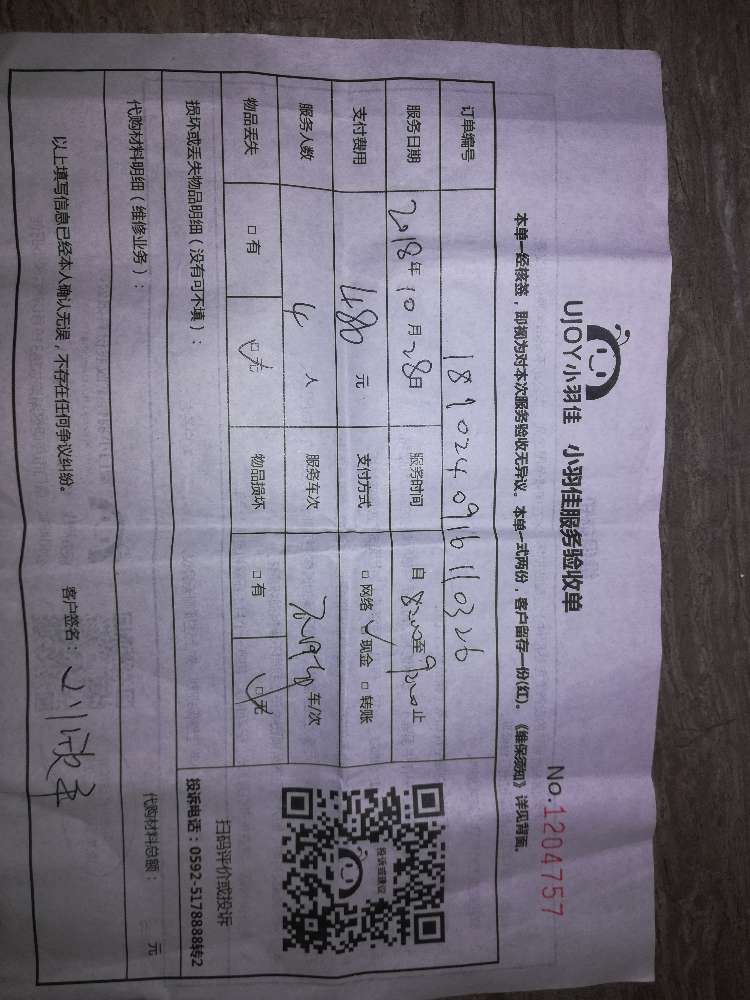 UJOY小羽佳 小羽佳服务验收单
No.1204757
本单一经核签，即视为对本次服务验收无异议。本单一式两份，客户留存一份(红)。《维保须知》详见背面。
订单编号
服务日期 2018年10月28日 服务时间 自8:00至9:00止
支付费用 480元 支付方式 □网络 ☑现金 □转账
服务人数 4人 服务车次 车/次
物品丢失 □有 ☑无 物品损坏 □有 ☑无
投诉或建议
扫码评价或投诉
投诉电话：0592-5178888转2
损坏或丢失物品明细（没有可不填）：
代购材料明细（维修业务）：
代购材料总额： 元
以上填写信息已经本人确认无误，不存在任何争议纠纷。 客户签名：